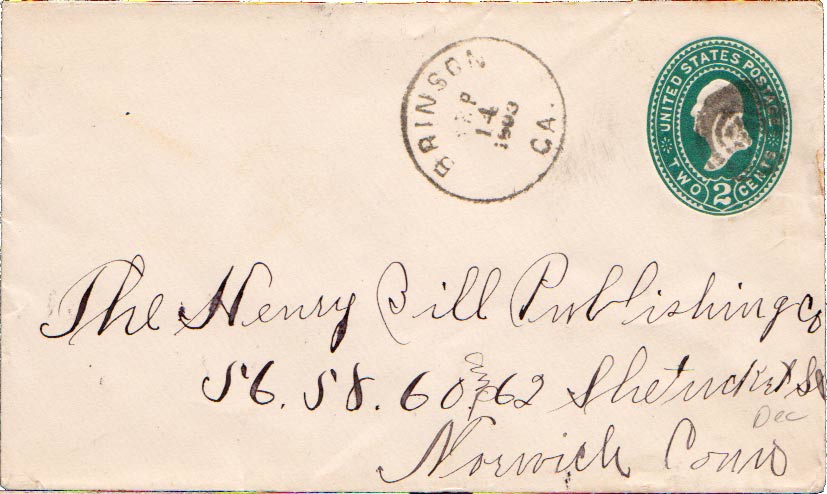 BRINSON
SEP
14
1893
GA.
UNITED STATES POSTAGE
TWO 2 CENTS
The Henry Bill Publishing Co
56. 58. 60 and 62 Shetucket St
Dec
Norwich Conn